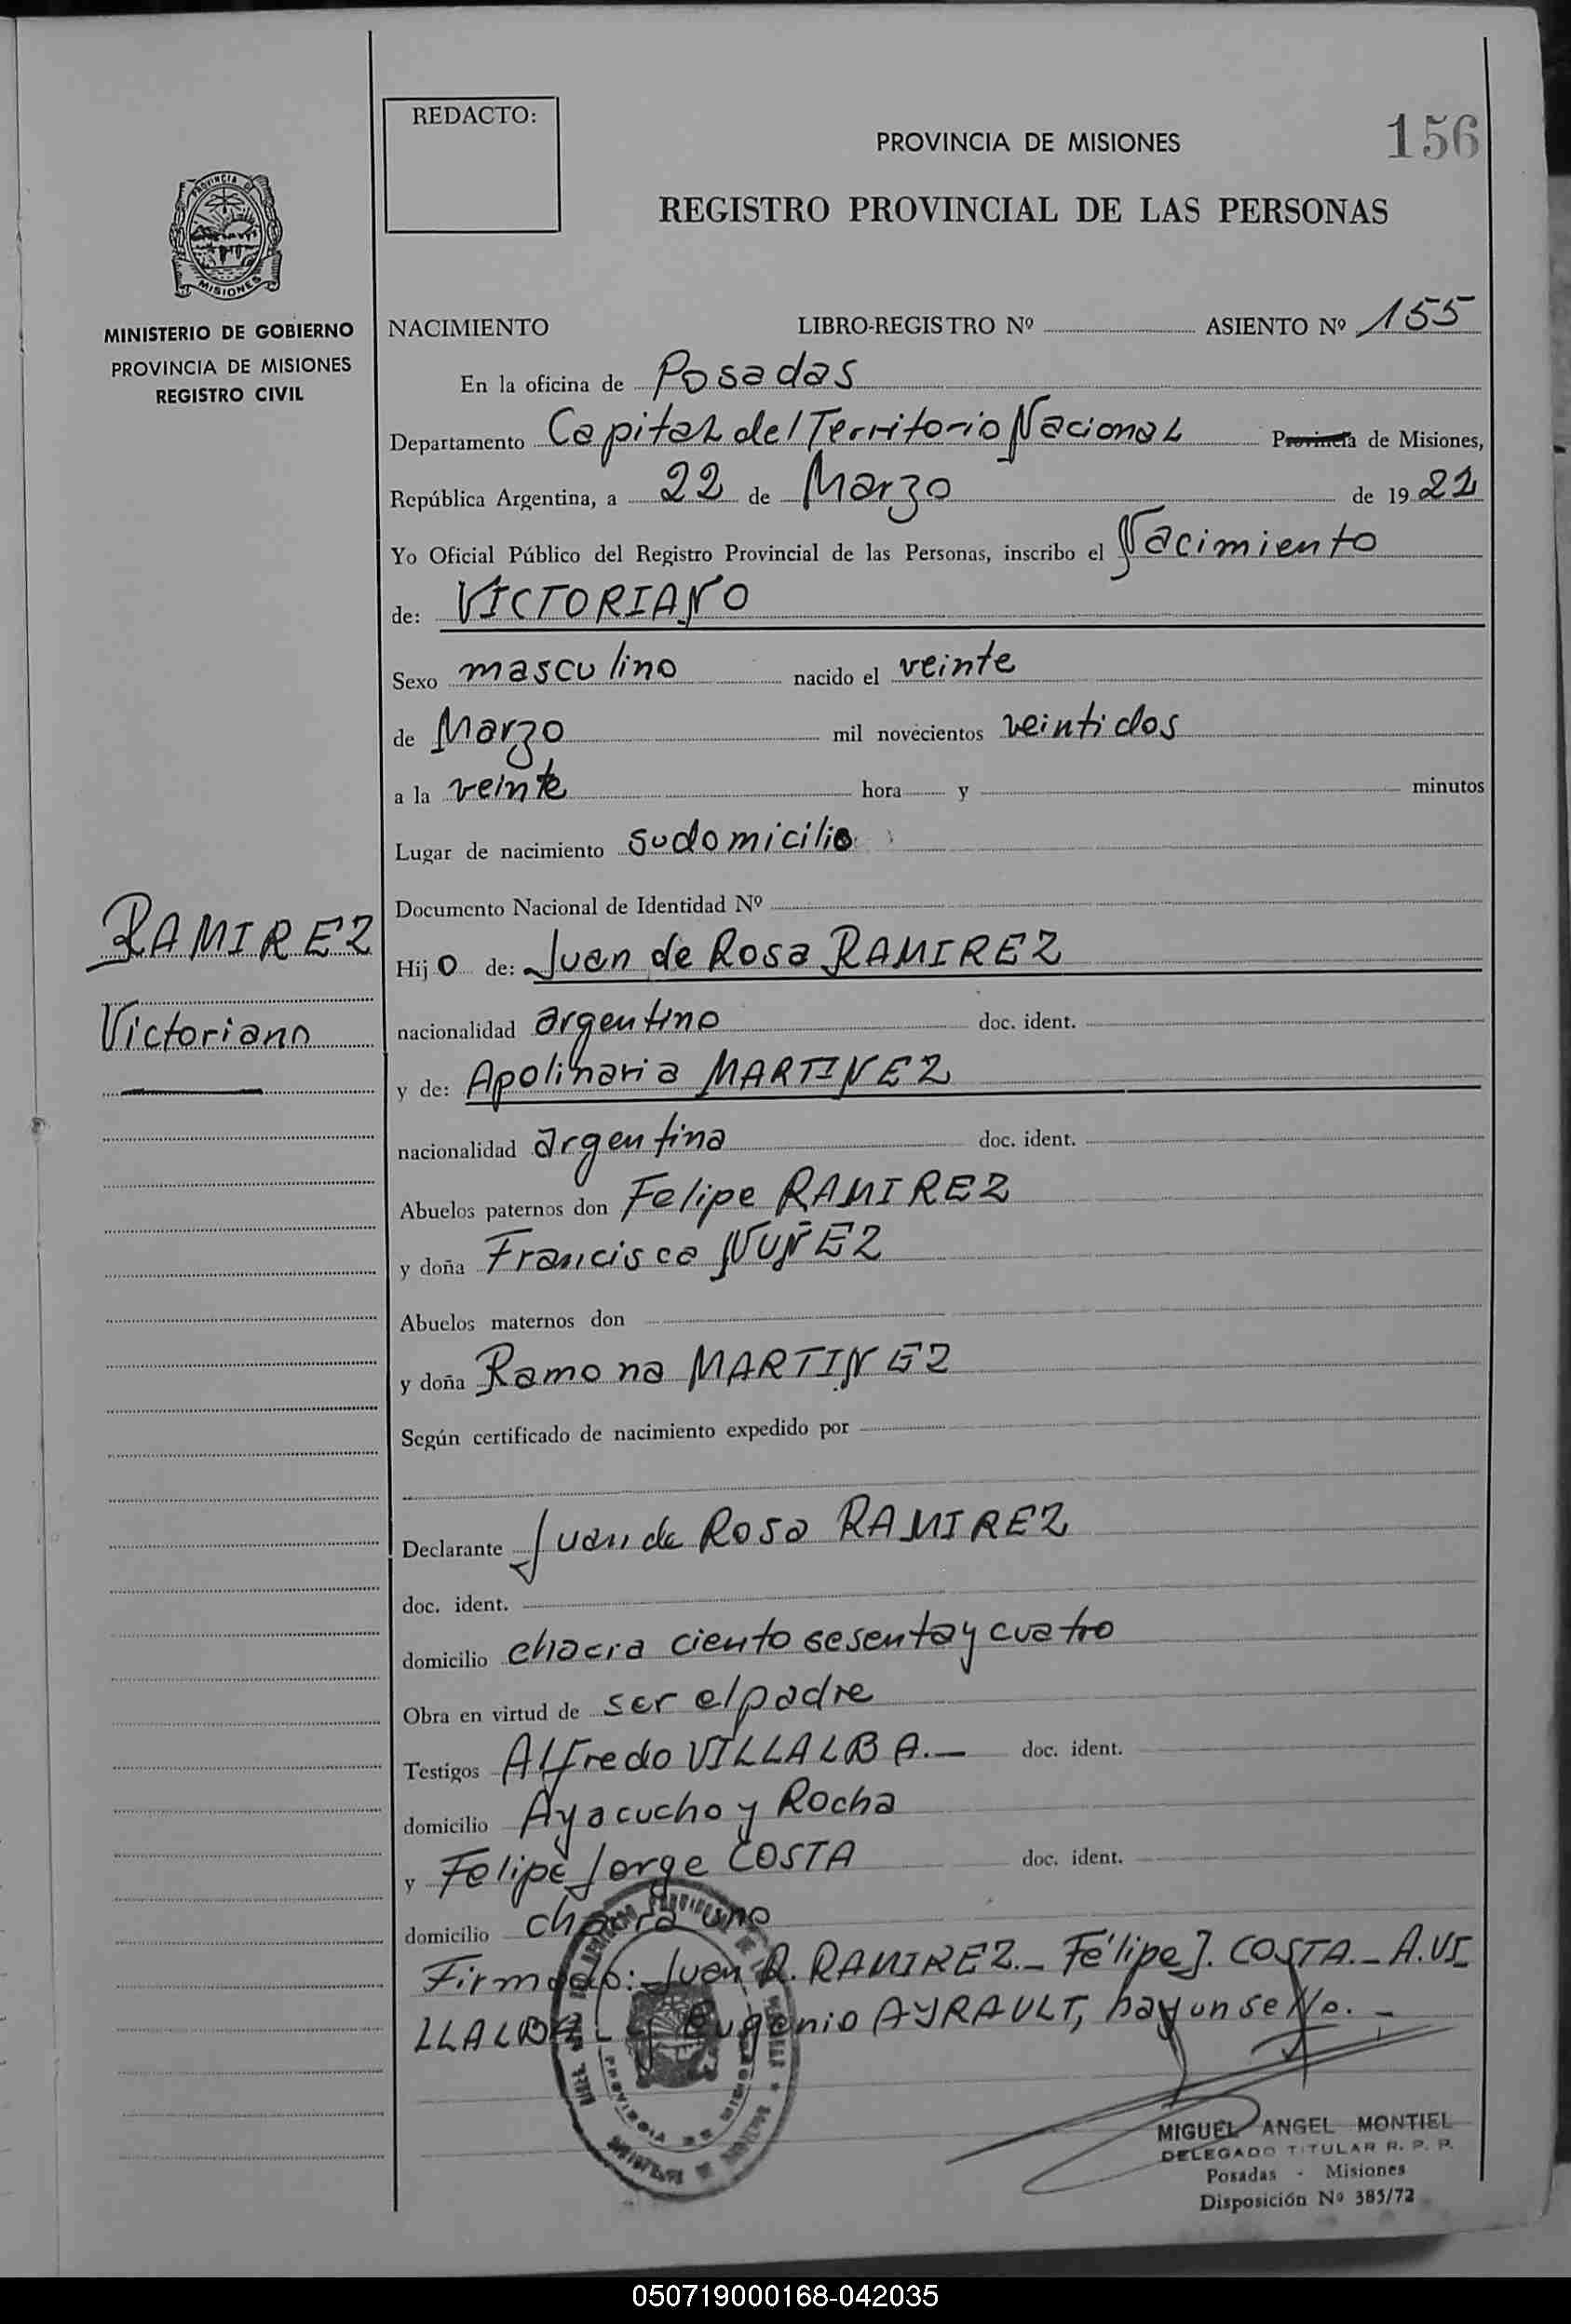 REDACTO:
PROVINCIA DE MISIONES
156
REGISTRO PROVINCIAL DE LAS PERSONAS
PROVINCIA DE
MISIONES
MINISTERIO DE GOBIERNO
PROVINCIA DE MISIONES
REGISTRO CIVIL
NACIMIENTO LIBRO-REGISTRO Nº ASIENTO Nº 155
En la oficina de Posadas
Departamento Capital del Territorio Nacional Provincia de Misiones,
República Argentina, a 22 de Marzo de 19 22
Yo Oficial Público del Registro Provincial de las Personas, inscribo el Nacimiento
de: VICTORIANO
Sexo masculino nacido el veinte
de Marzo mil novecientos veintidos
a la veinte hora y minutos
Lugar de nacimiento su domicilio
Documento Nacional de Identidad Nº
RAMIREZ
Victoriano
Hijo de: Juan de Rosa RAMIREZ
nacionalidad argentino doc. ident.
y de: Apolinaria MARTINEZ
nacionalidad argentina doc. ident.
Abuelos paternos don Felipe RAMIREZ
y doña Francisca NUÑEZ
Abuelos maternos don
y doña Ramona MARTINEZ
Según certificado de nacimiento expedido por
Declarante Juan de Rosa RAMIREZ
doc. ident.
domicilio chacra ciento sesenta y cuatro
Obra en virtud de ser el padre
Testigos Alfredo VILLALBA.— doc. ident.
domicilio Ayacucho y Rocha
y Felipe Jorge COSTA doc. ident.
domicilio chacra uno
Firmado: Juan R. RAMIREZ.- Felipe J. COSTA.- A. VI
LLALBA - Eugenio AYRAULT, hay un sello.-
MIGUEL ANGEL MONTIEL
DELEGADO TITULAR R. P. P.
Posadas - Misiones
Disposición Nº 385/72
050719000168-042035